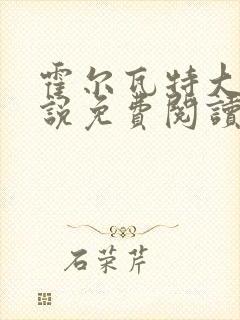 霍尔瓦特大
說免費閱讀
石荣芹